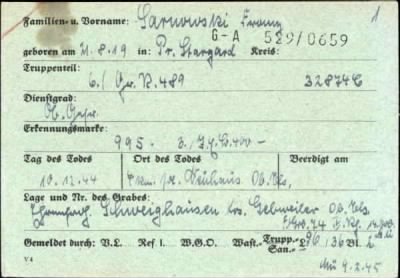 Familien- u. Vorname: Sarnowski Franz 1
G-A 529/0659
geboren am 21.8.19 in: Pr. Stargard Kreis:
Truppenteil:
6./Gr. R. 489 32874C
Dienstgrad:
Ob. Gefr.
Erkennungsmarke:
995 - 3./
Tag des Todes Ort des Todes Beerdigt am
10.12.44 Neuhaus Ob. Els.
Lage und Nr. des Grabes:
Schweighausen Krs. Gebweiler Ob. Els.
Gemeldet durch: V.L. Ref I. W.G.O. Wast. Trupp. San.
V4 4.2.45